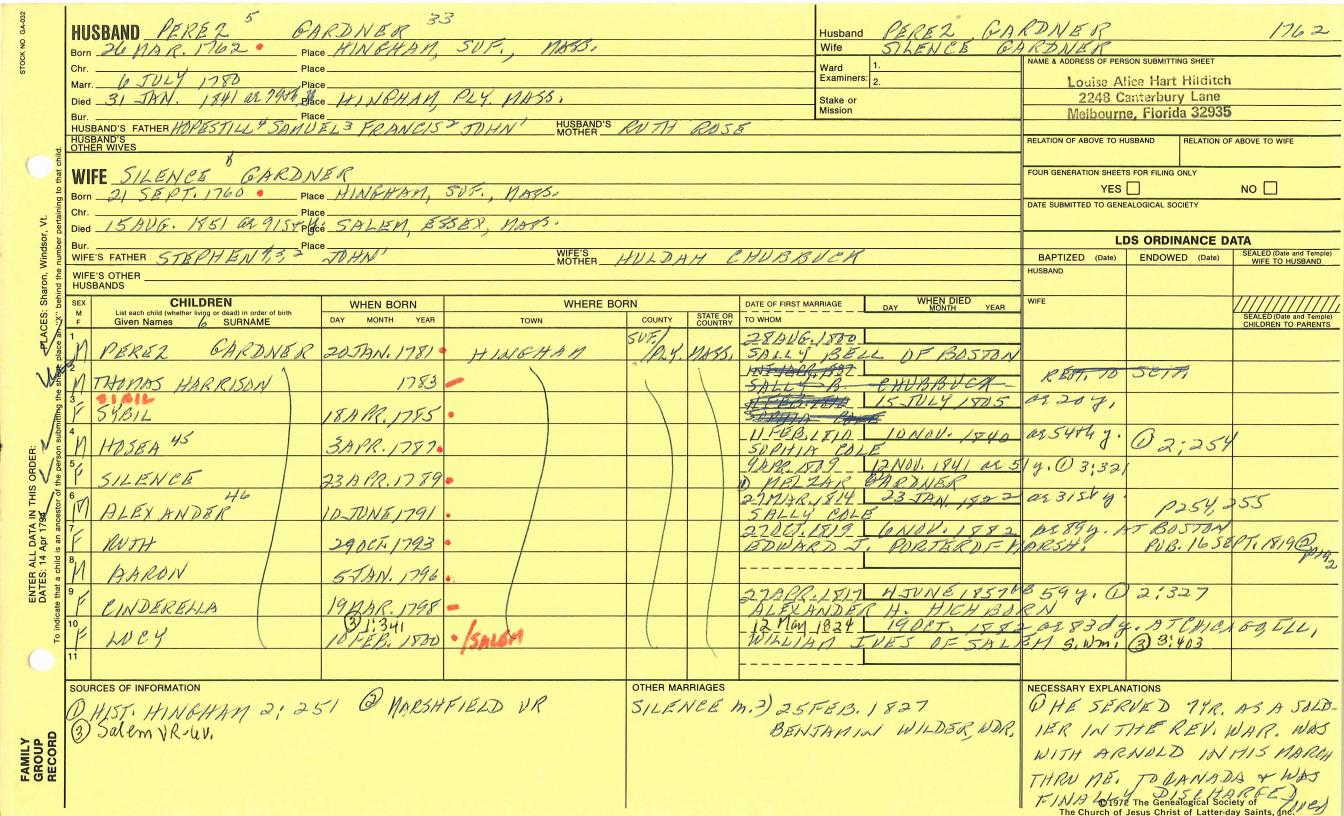 STOCK NO. GA-032
HUSBAND PEREZ 5 GARDNER 33
Born 26 MAR. 1762 Place HINGHAM, SUF., MASS.
Chr. Place
Marr. 6 JULY 1780 Place
Died 31 JAN. 1841 ae 79th y. Place HINGHAM, PLY. MASS.
Bur. Place
HUSBAND'S FATHER HOPESTILL 4 SAMUEL 3 FRANCIS 2 JOHN 1 HUSBAND'S MOTHER RUTH ROSE
HUSBAND'S OTHER WIVES
WIFE SILENCE GARDNER
Born 21 SEPT. 1760 Place HINGHAM, SUF., MASS.
Chr. Place
Died 15 AUG. 1851 ae 91st y. Place SALEM, ESSEX, MASS.
Bur. Place
WIFE'S FATHER STEPHEN JOHN 1 WIFE'S MOTHER HULDAH CHUBBUCK
WIFE'S OTHER HUSBANDS
Husband PEREZ GARDNER 1762
Wife SILENCE GARDNER
Ward Examiners: 1.
2.
Stake or Mission
NAME & ADDRESS OF PERSON SUBMITTING SHEET
Louise Alice Hart Hilditch
2248 Canterbury Lane
Melbourne, Florida 32935
RELATION OF ABOVE TO HUSBAND RELATION OF ABOVE TO WIFE
FOUR GENERATION SHEETS FOR FILING ONLY
YES NO
DATE SUBMITTED TO GENEALOGICAL SOCIETY
LDS ORDINANCE DATA
BAPTIZED (Date) ENDOWED (Date) SEALED (Date and Temple) WIFE TO HUSBAND
HUSBAND
WIFE
SEALED (Date and Temple) CHILDREN TO PARENTS
SEX M F CHILDREN WHEN BORN WHERE BORN DATE OF FIRST MARRIAGE WHEN DIED
List each child (whether living or dead) in order of birth
Given Names 6 SURNAME DAY MONTH YEAR TOWN COUNTY STATE OR COUNTRY TO WHOM DAY MONTH YEAR
1 M PEREZ GARDNER 20 JAN. 1781 HINGHAM SUF./PLY. MASS. 28 AUG. 1800
SALLY BELL OF BOSTON
2 M THOMAS HARRISON 1783 SALLY B. CHUBBUCK
SIBIL
3 F SYBIL 18 APR. 1785 15 JULY 1805 ae 20 y.
4 M HOSEA 45 3 APR. 1787 11 FEB. 1810 10 NOV. 1840 ae 54th y. ① 2:254
SOPHIA COLE
5 F SILENCE 23 APR. 1789 9 APR. 1809 12 NOV. 1841 ae 51 y. ① 3:321
1) MELZAR GARDNER
6 M ALEXANDER 46 10 JUNE 1791 27 MAR. 1814 23 JAN. 1822 ae 31st y. P254, 255
SALLY COLE
7 F RUTH 29 OCT. 1793 27 OCT. 1819 6 NOV. 1882 ae 89 y. AT BOSTON
EDWARD J. PORTER OF MARSH. PUB. 16 SEPT. 1819 ②
8 M AARON 5 JAN. 1796
9 F CINDERELLA 19 MAR. 1798 27 APR. 1817 4 JUNE 1857 ae 59 y. ① 2:327
ALEXANDER H. HICHBORN
③ 1:341
10 F LUCY 10 FEB. 1800 /SALEM 12 May 1824 19 OCT. 1882 ae 83d y. AT CHICAGO, ILL,
WILLIAM IVES OF SALEM ③ 3:403
11
SOURCES OF INFORMATION
① HIST. HINGHAM 2:251 ② MARSHFIELD VR
③ Salem VR-6v.
OTHER MARRIAGES
SILENCE m. 2) 25 FEB. 1827
BENJAMIN WILDER, WDR.
NECESSARY EXPLANATIONS
① HE SERVED 7 YR. AS A SOLD-
IER IN THE REV. WAR. WAS
WITH ARNOLD IN HIS MARCH
THRU ME. TO CANADA & WAS
FINALLY DISCHARGED
©1972 The Genealogical Society of
The Church of Jesus Christ of Latter-day Saints, Inc.
ENTER ALL DATA IN THIS ORDER:
DATES: 14 Apr 1794
PLACES: Sharon, Windsor, Vt.
To indicate that a child is an ancestor of the person submitting the sheet, place an "X" behind the number pertaining to that child.
FAMILY
GROUP
RECORD